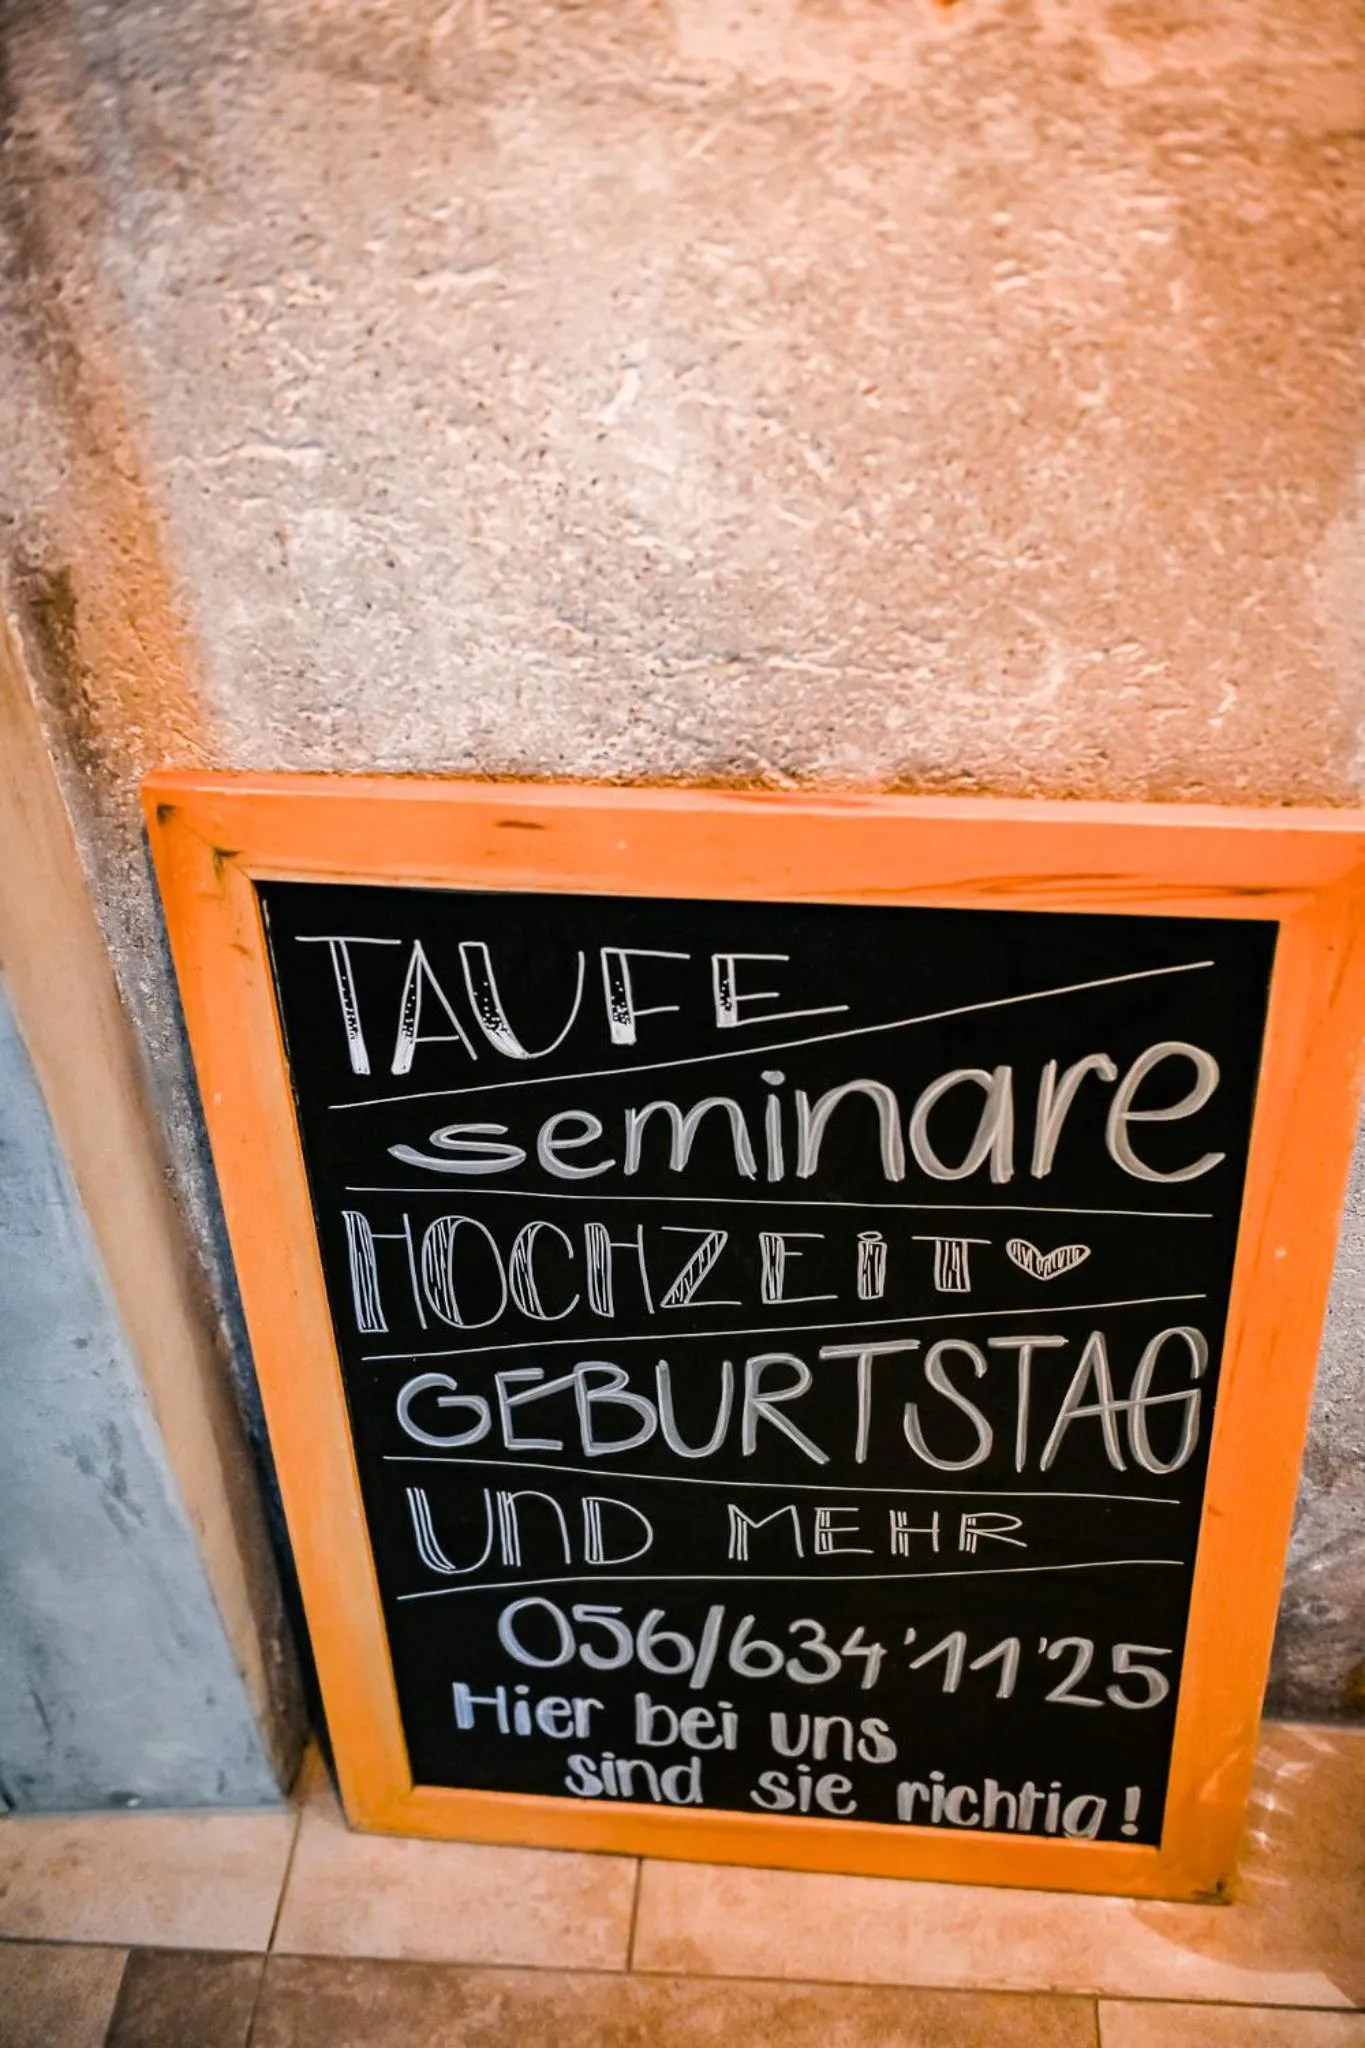 TAUFE
seminare
HOCHZEiT
GEBURTSTAG
UnD MEHR
056/634'11'25
Hier bei uns
sind sie richtig!